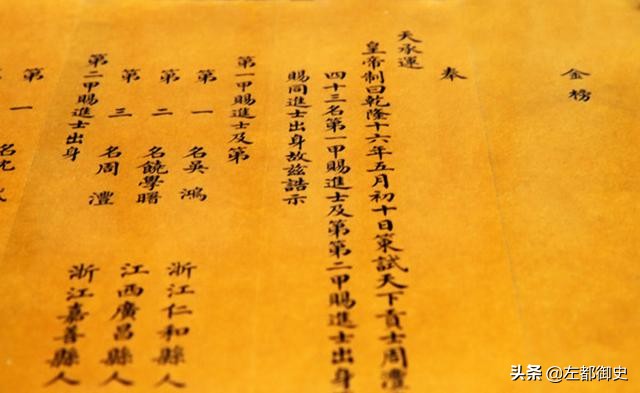 金榜
奉
天承運
皇帝制曰乾隆十六年五月初十日策試天下貢士周灃
四十三名第一甲賜進士及第第二甲賜進士出身
賜同進士出身故茲誥示
第一甲賜進士及第
第一名吳鴻 浙江仁和縣人
第二名饒學曙 江西廣昌縣人
第三名周灃 浙江嘉善縣人
第二甲賜進士出身
第一名沈
头条 @左都御史